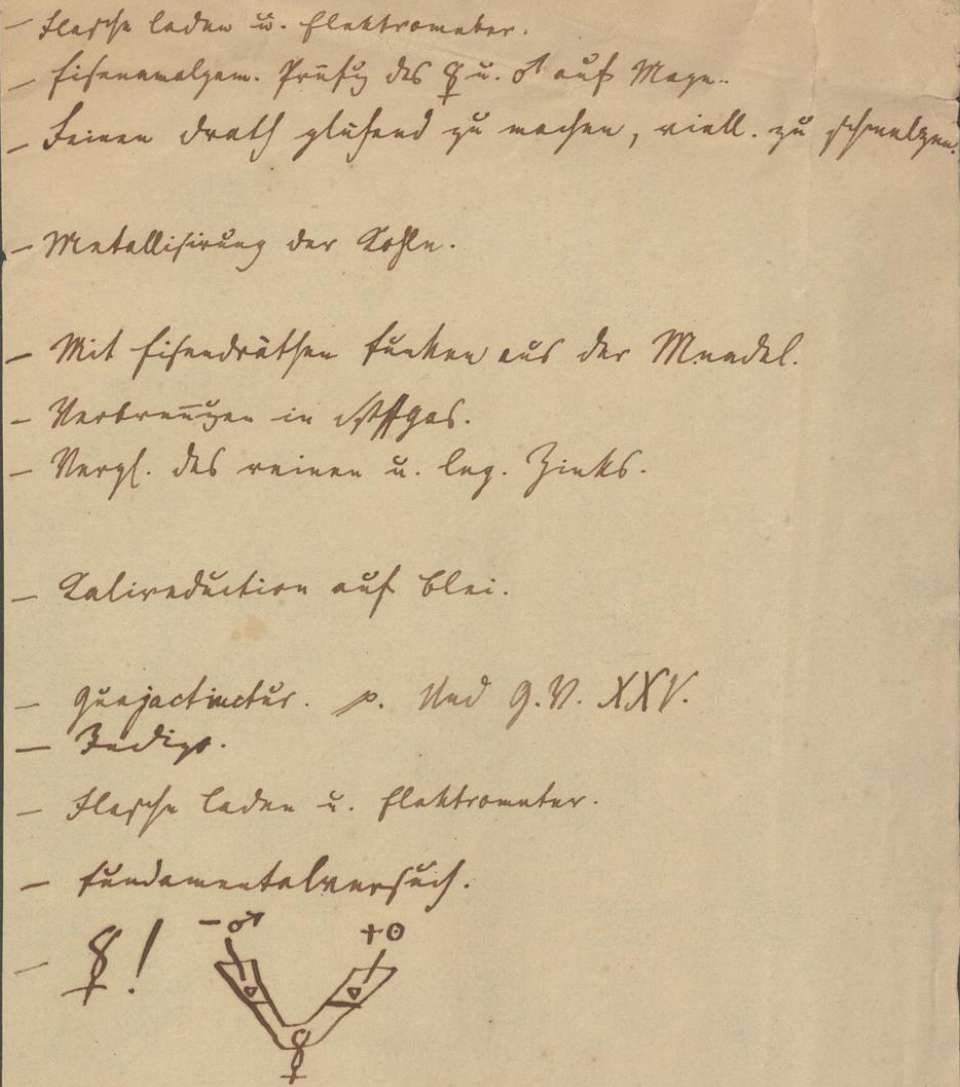 – Flasche laden u. Elektrometer.
– Eisenamalgam. Prüfg des ☿ u. ♂ auf Magn..
– Feinen Drath glühend zu machen, viell. zu schmelzen.
– Metallisirung der Kohle.
– Mit Eisendräthen Funken aus der
– Verbrennungen in
– Vergl. des reinen u. leg. Zinks.
– Kalireduction auf Blei.
– Guajactinctur. p. Und G.V. XXV.
– Indigo.
– Flasche laden u. Elektrometer.
– Fundamentalversuch.
– ☿!
–♂ +☉
▽ ▽
☿